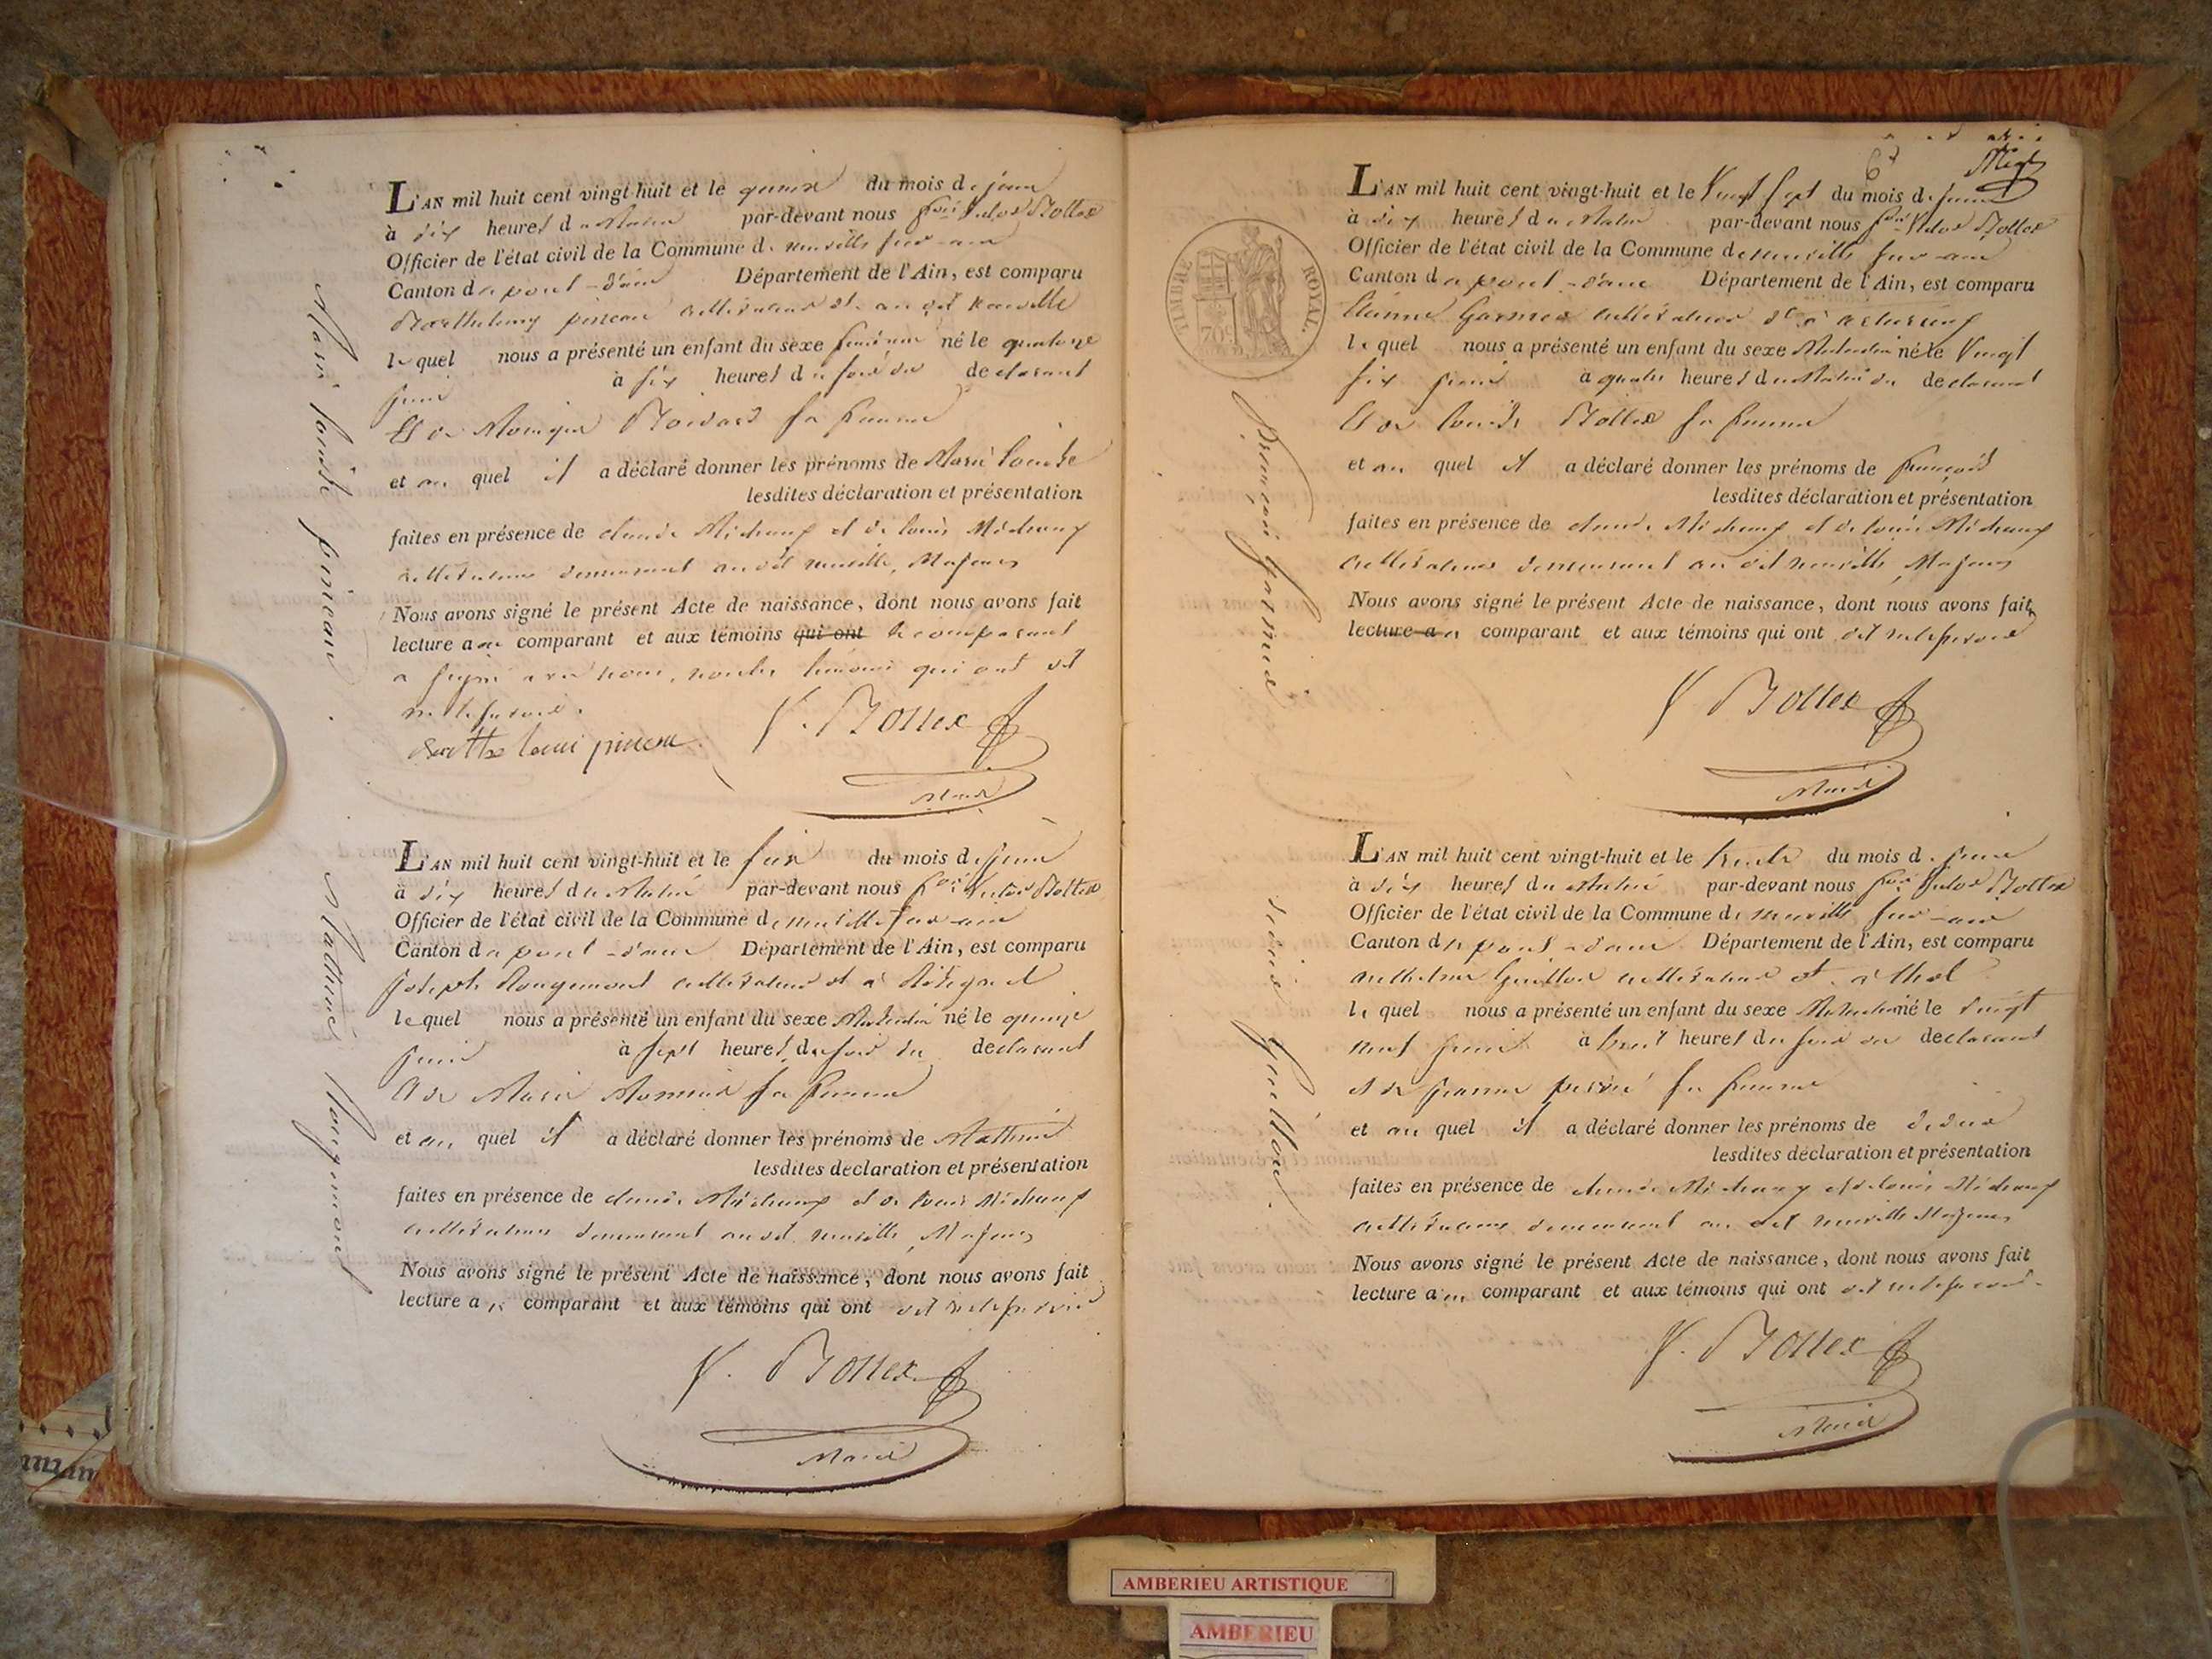 Marie Louise pineau.
L'AN mil huit cent vingt-huit et le quinze du mois de juin
à dix heures du Matin par-devant nous fçois Victor Bottex
Officier de l'état civil de la Commune de neuville sur ain
Canton de pont-d'ain Département de l'Ain, est comparu
Barthelemy pineau cultivateur dt au dit neuville
lequel nous a présenté un enfant du sexe féminin né le quatorze
juin à six heures du soir du declarant
Et de Monique sa femme
et au quel il a déclaré donner les prénoms de Marie Louise
lesdites déclaration et présentation
faites en présence de claude Michaux et de louis Michaux
cultivateurs demeurant au dit neuville, Majeurs
Nous avons signé le présent Acte de naissance, dont nous avons fait
lecture au comparant et aux témoins qui ont le comparant
a signé avec nous, non les témoins qui ont dit
ne le savoir.
pineau
V. Bottex
Maire
Mathieu Rougemont
L'AN mil huit cent vingt-huit et le seize du mois de juin
à dix heures du Matin par-devant nous fçois Victor Bottex
Officier de l'état civil de la Commune de neuville sur ain
Canton de pont-d'ain Département de l'Ain, est comparu
joseph Rougemont cultivateur dt à
lequel nous a présenté un enfant du sexe Masculin né le quinze
juin à sept heures du soir du declarant
Et de Marie Monnier sa femme
et au quel il a déclaré donner les prénoms de Mathieu
lesdites declaration et présentation
faites en présence de claude Michaux et de louis Michaux
cultivateurs demeurant au dit neuville, Majeurs
Nous avons signé le présent Acte de naissance, dont nous avons fait
lecture au comparant et aux témoins qui ont dit ne le savoir
V. Bottex
Maire
67
TIMBRE ROYAL.
70c
françois Garnier
L'AN mil huit cent vingt-huit et le Vingt Sept du mois de juin
à dix heures du Matin par-devant nous fçois Victor Bottex
Officier de l'état civil de la Commune de neuville sur ain
Canton de pont-d'ain Département de l'Ain, est comparu
Etienne Garnier cultivateur dt à
lequel nous a présenté un enfant du sexe Masculin né le Vingt
six juin à quatre heures du Matin du declarant
Et de Louise Bottex sa femme
et au quel il a déclaré donner les prénoms de françois
lesdites déclaration et présentation
faites en présence de claude Michaux et de louis Michaux
cultivateurs demeurant au dit neuville, Majeurs
Nous avons signé le présent Acte de naissance, dont nous avons fait
lecture au comparant et aux témoins qui ont dit ne le savoir
V. Bottex
Maire
Guillon.
L'AN mil huit cent vingt-huit et le trente du mois de juin
à dix heures du Matin par-devant nous fçois Victor Bottex
Officier de l'état civil de la Commune de neuville sur ain
Canton de pont-d'ain Département de l'Ain, est comparu
Guillon cultivateur dt à thol
lequel nous a présenté un enfant du sexe Masculin né le vingt
neuf juin à huit heures du soir du declarant
et de jeanne sa femme
et au quel il a déclaré donner les prénoms de
lesdites déclaration et présentation
faites en présence de claude Michaux et de louis Michaux
cultivateurs demeurant au dit neuville Majeurs
Nous avons signé le présent Acte de naissance, dont nous avons fait
lecture au comparant et aux témoins qui ont dit ne le savoir.
V. Bottex
Maire
AMBERIEU ARTISTIQUE
AMBERIEU